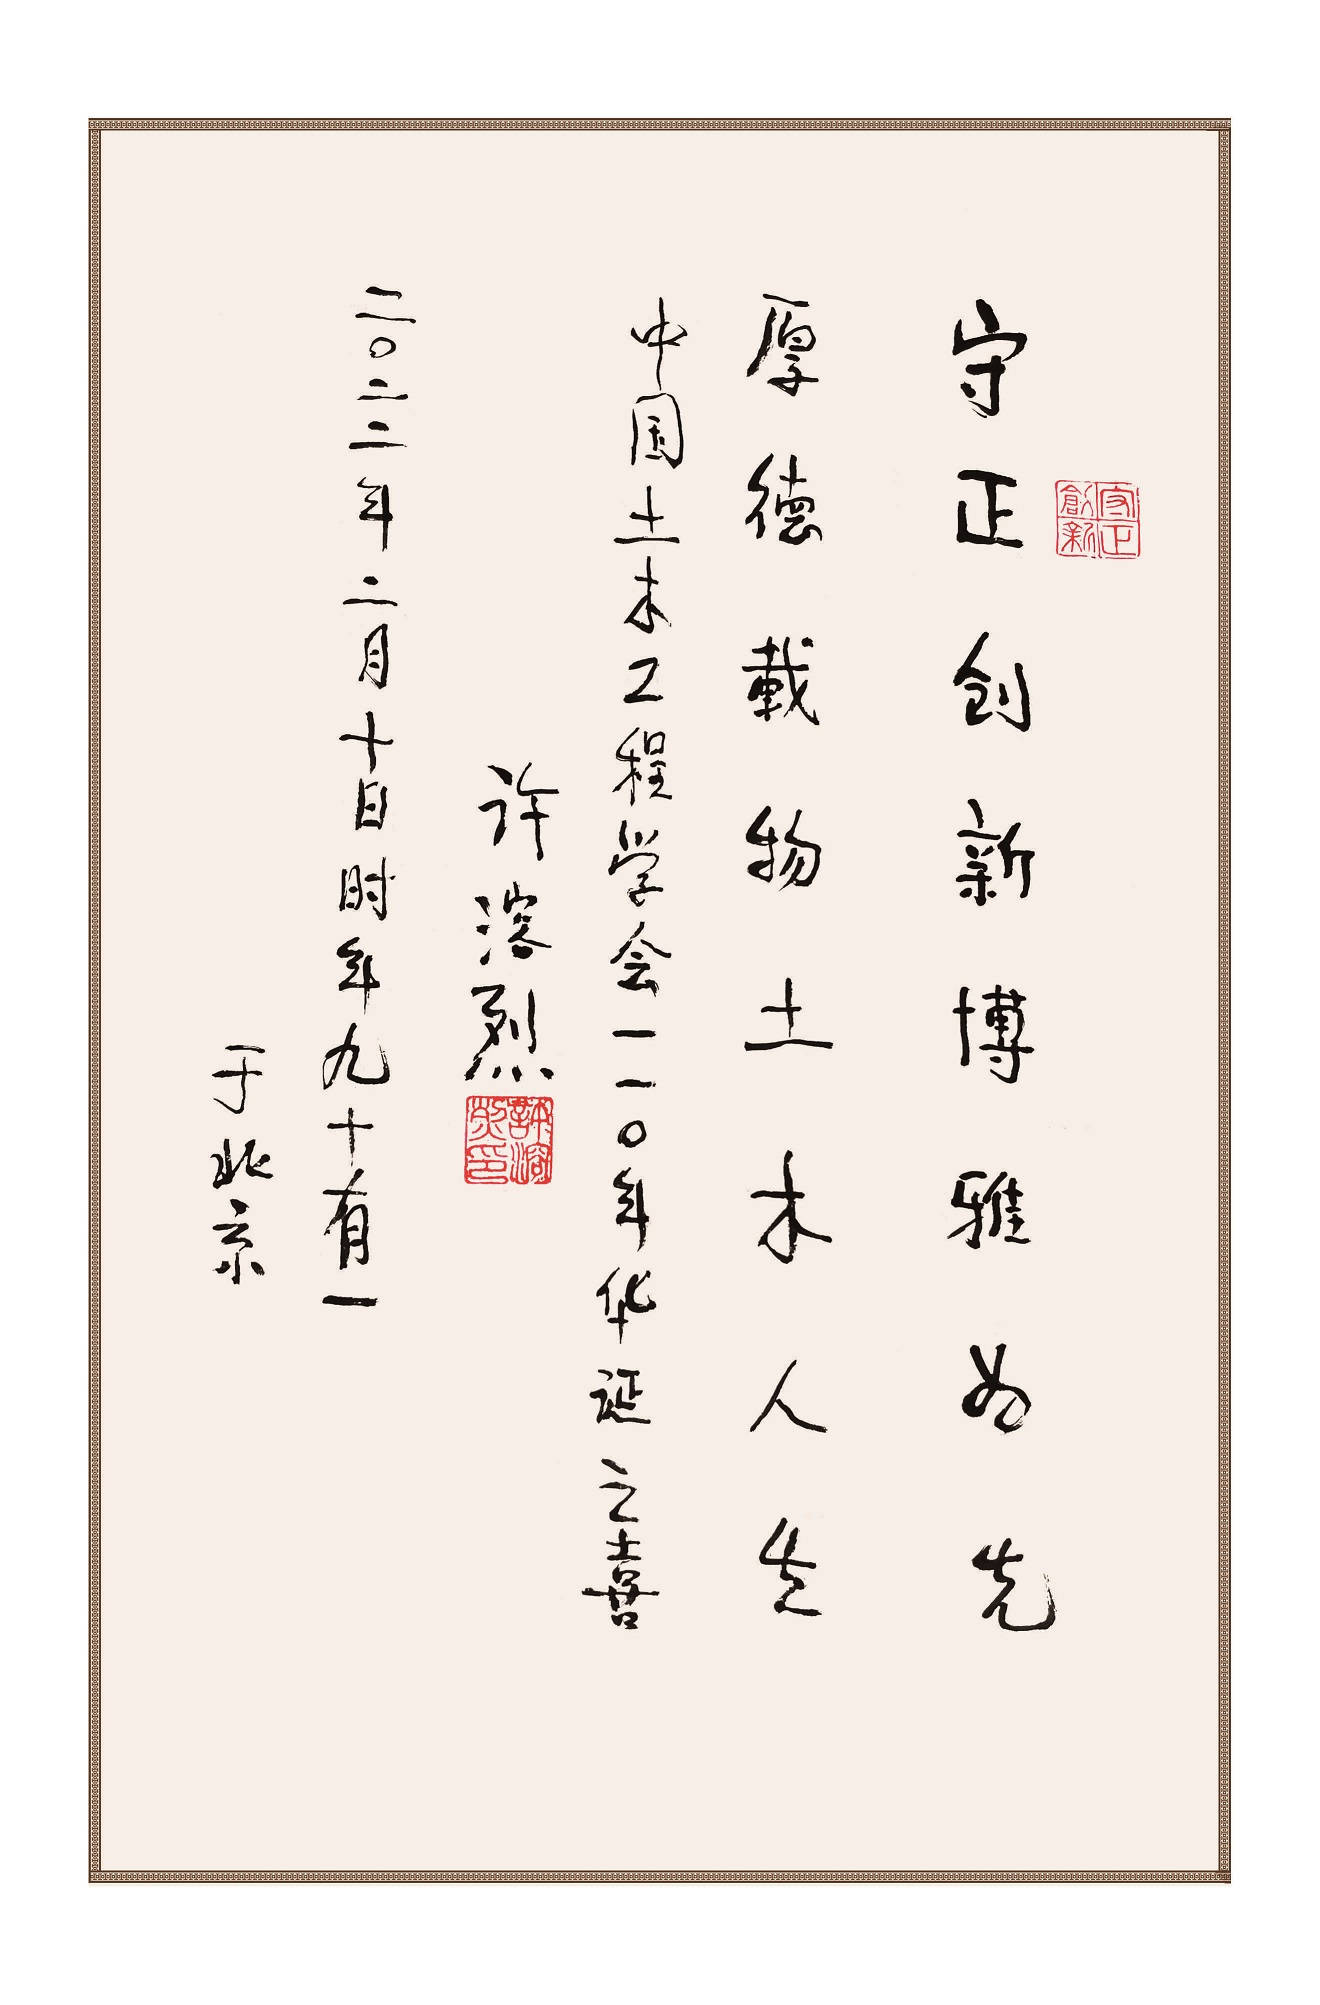 守正創新
守正创新博雅为先
厚德載物土木人生
中国土木工程学会一一〇年华诞之喜
许溶烈
許溶烈印
二〇二二年二月十日时年九十有一
于北京